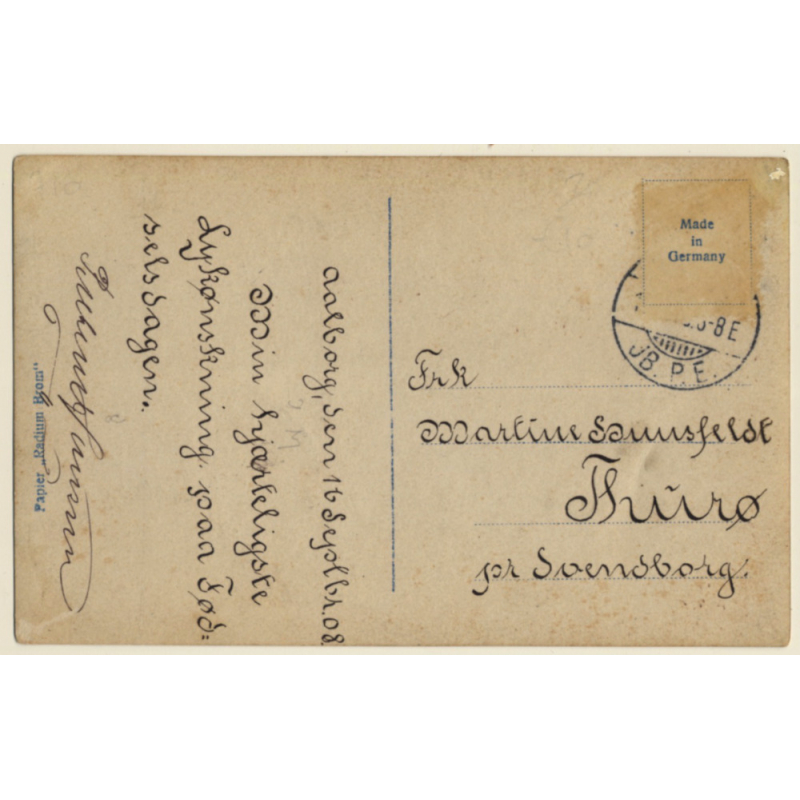 Aalborg, den 16 Septbr. 08
Min hjærteligste
Lykønskning paa Fød=
selsdagen.
Papier „Radium Brom“
Made
in
Germany
8-8E
JB. P. E.
Frk
Martine
Thurø
pr Svendborg.